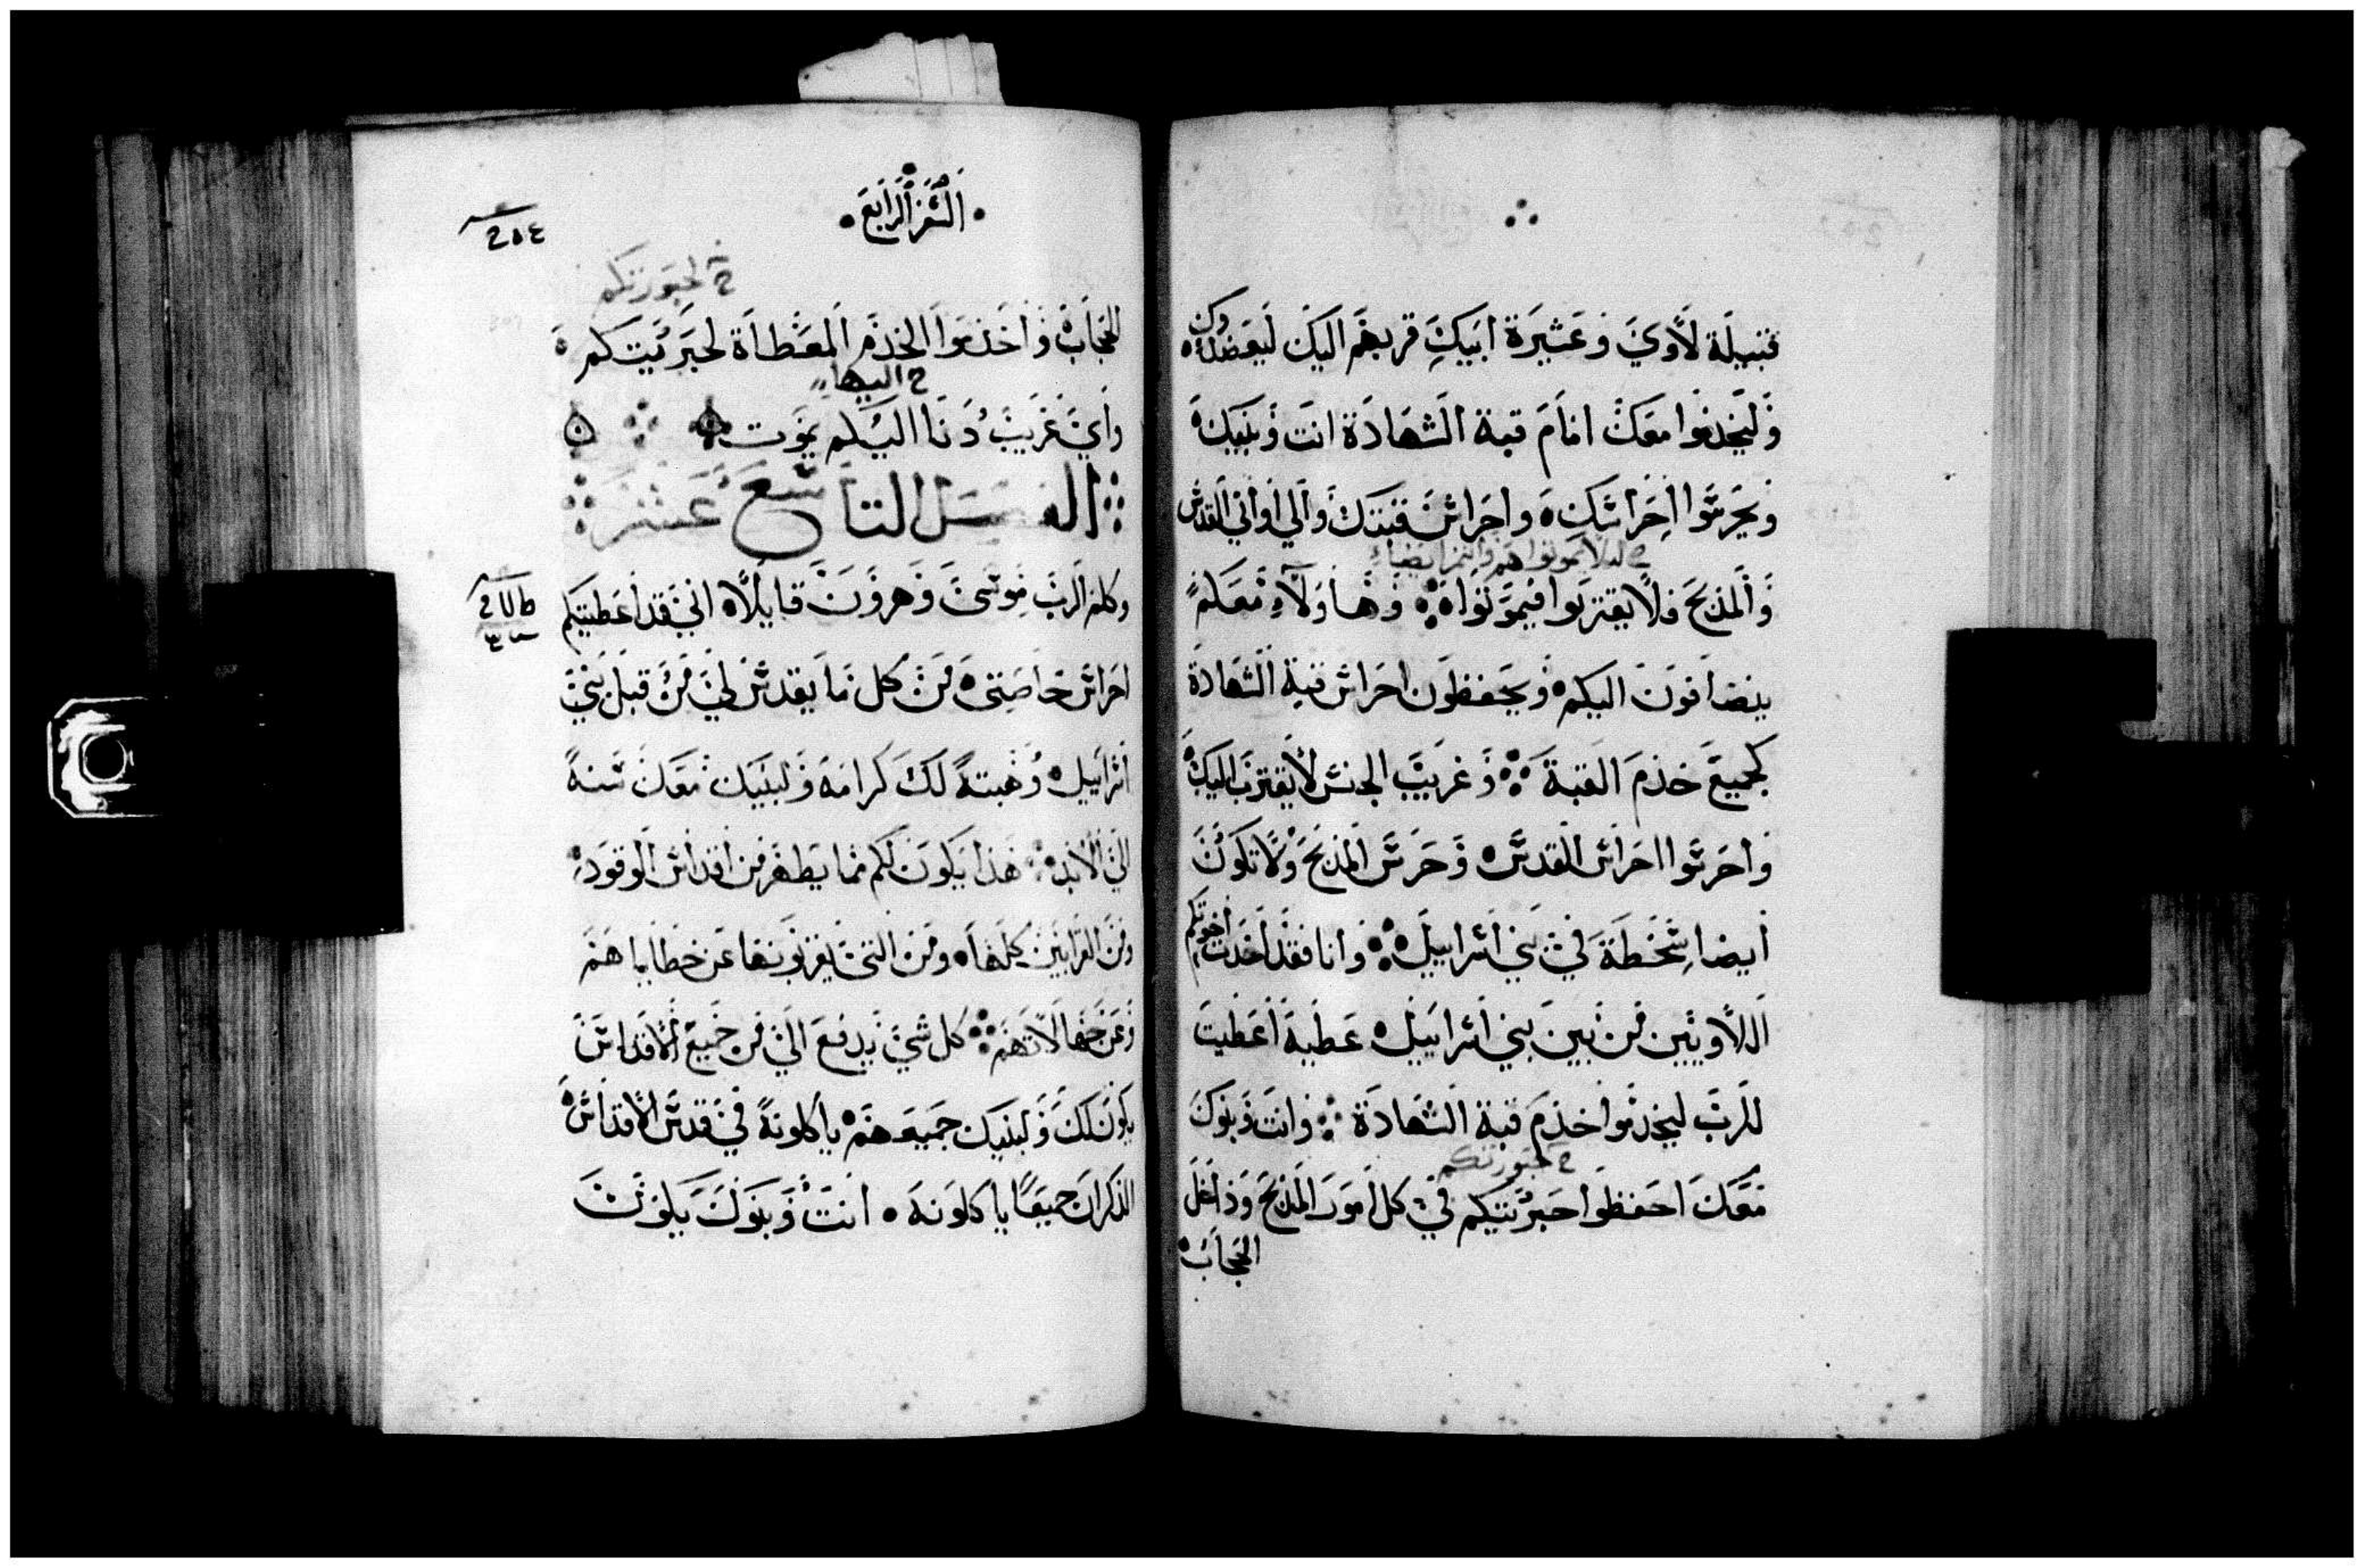 قبيلة لاوي وعشيرة ابيك قربهم اليك ليعضدوك
وليخدموا معك امام قبة الشهادة انت وبنيك
ويحرسوا احراسك واحراس قبتك والي اواني القدس
ح ليلا يموتوا هم وانتم ايضا
والمذبح فلا يقتربوا فيموتوا وهاولاء معكم
ينضافون اليكم ويحفظون احراس قبة الشهادة
كجميع خدم القبة وغريب الجنس لا يقترب اليك
واحرسوا احراس القدس وحرس المذبح ولا تكون
ايضا سخطة في بني اسراييل وانا فقد اخدت اخوتكم
اللاويين من بين بني اسراييل عطية اعطيت
للرب ليخدموا خدم قبة الشهادة وانت وبنوك
ح كهنوتكم
معك احفظوا حبريتكم في كل امور المذبح وداخل
الحجاب
السفر الرابع
٢٥٤
الحجاب واخدموا الخدم المعطاة لحبريتكم
ح اليها
واي غريب دنا اليكم يموت
الفصل التاسع عشر
وكلم الرب موسى وهرون قايلا اني قد اعطيتكم
احراس خاصتى من كل ما يقدس لي من قبل بني
اسراييل وهبته لك كرامة ولبنيك معك سنة
الي الابد هذا يكون لكم مما يطهر من اقداس الوقود
ومن القرابين كلها ومن التى يقربونها عن خطاياهم
وعن جهالاتهم كل شي يدفع الي من جميع الاقداس
يكون لك ولبنيك جميعهم ياكلونه في قدس الاقداس
الذكران جميعا ياكلونه انت وبنوك يكون